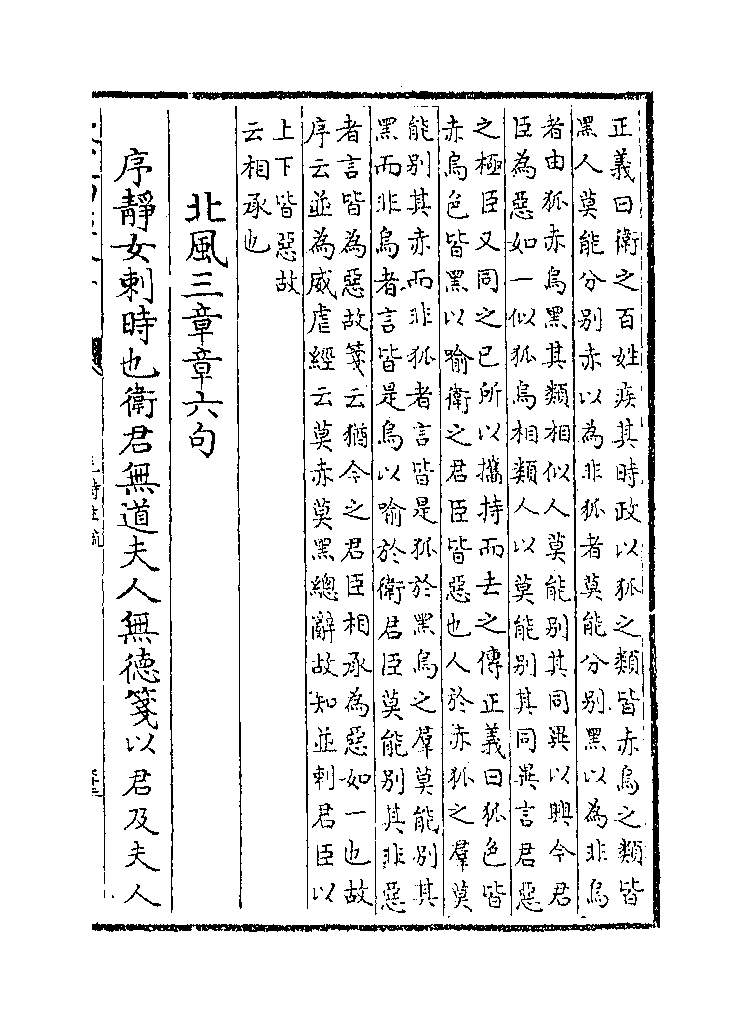 正義曰衛之百姓疾其時政以狐之類皆赤烏之類皆
黑人莫能分別赤以為非狐者莫能分別黑以為非烏
者由狐赤烏黑其類相似人莫能別其同異以興今君
臣為惡如一似狐烏相類人以莫能別其同異言君惡
之極臣又同之已所以攜持而去之傳正義曰狐色皆
赤烏色皆黑以喻衛之君臣皆惡也人於赤狐之羣莫
能別其赤而非狐者言皆是狐於黑烏之羣莫能別其
黑而非烏者言皆是烏以喻於衛君臣莫能別其非惡
者言皆為惡故箋云猶今之君臣相承為惡如一也故
序云並為威虐經云莫赤莫黑總辭故知並刺君臣以
上下皆惡故
云相承也
北風三章章六句
序靜女刺時也衛君無道夫人無德箋以君及夫人